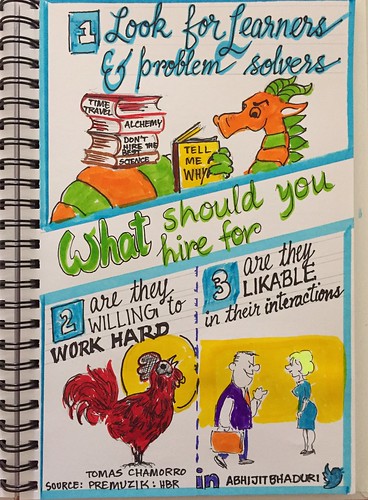 1 Look for Learners
& problem solvers
TIME
TRAVEL
ALCHEMY
DON'T
HIRE THE
BEST
SCIENCE
TELL
ME
WHY
What should you
hire for
2 are they
WILLING to
WORK HARD
3 are they
LIKABLE
in their interactions
TOMAS CHAMORRO
SOURCE: PREMUZIK: HBR
in ABHIJITBHADURI